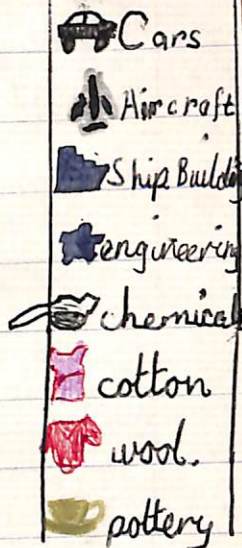 Cars
Aircraft
Ship Building
engineering
chemical
cotton
wool.
pottery